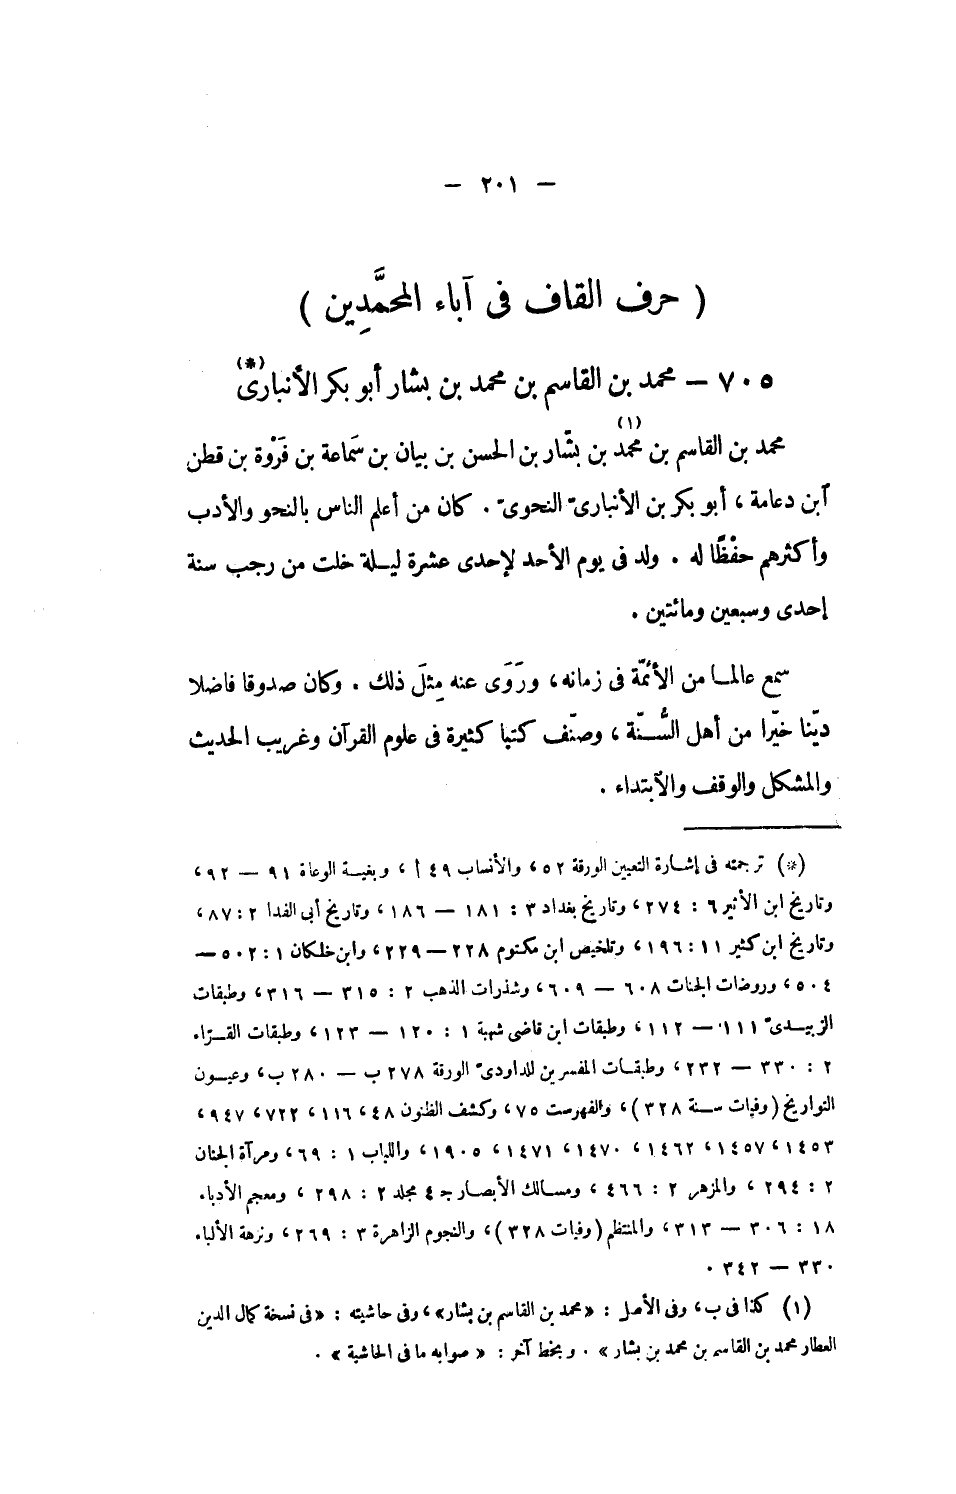 — ٢٠١ —
( حرف القاف فى آباء المحمَّدِين )
٧٠٥ – محمد بن القاسم بن محمد بن بشار أبو بكر الأنبارى(*)
محمد بن القاسم بن محمد(١) بن بشّار بن الحسن بن بيان بن سَمَاعة بن فَرْوة بن قطن
آبن دعامة ، أبو بكر بن الأنبارىّ النحوىّ . كان من أعلم الناس بالنحو والأدب
وأكثرهم حفْظًا له . ولد فى يوم الأحد لإحدى عشرة ليلة خلت من رجب سنة
إحدى وسبعين ومائتين .
سمع عالما من الأئمّة فى زمانه، ورَوَى عنه مِثلَ ذلك . وكان صدوقا فاضلا
ديّنا خيّرا من أهل السُّنّة ، وصنّف كتبا كثيرة فى علوم القرآن وغريب الحديث
والمشكل والوقف والآبتداء .
(*) ترجمته فى إشارة التعيين الورقة ٥٢ ، والأنساب ٤٩ أ ، وبغية الوعاة ٩١ — ٩٢ ،
وتاريخ ابن الأثير ٦ : ٢٧٤ ، وتاريخ بغداد ٣ : ١٨١ — ١٨٦ ، وتاريخ أبى الفدا ٢ : ٨٧ ،
وتاريخ ابن كثير ١١ : ١٩٦ ، وتلخيص ابن مكتوم ٢٢٨ — ٢٢٩ ، وابن خلكان ١ : ٥٠٢ —
٥٠٤ ، وروضات الجنات ٦٠٨ — ٦٠٩ ، وشذرات الذهب ٢ : ٣١٥ — ٣١٦ ، وطبقات
الزبيدىّ ١١١ — ١١٢ ، وطبقات ابن قاضى شهبة ١ : ١٢٠ — ١٢٣ ، وطبقات القرّاء
٢ : ٢٣٠ — ٢٣٢ ، وطبقات المفسرين للداودىّ الورقة ٢٧٨ ب — ٢٨٠ ب ، وعيون
التواريخ (وفيات سنة ٣٢٨) ، والفهرست ٧٥ ، وكشف الظنون ٤٨ ، ١١٦ ، ٧٢٢ ، ٩٤٧ ،
١٤٥٣ ، ١٤٥٧ ، ١٤٦٢ ، ١٤٧٠ ، ١٤٧١ ، ١٩٠٥ ، واللباب ١ : ٦٩ ، ومرآة الجنان
٢ : ٢٩٤ ، والمزهر ٢ : ٤٦٦ ، ومسالك الأبصار ج ٤ مجلد ٢ : ٢٩٨ ، ومعجم الأدباء
١٨ : ٣٠٦ — ٣١٣ ، والمنتظم (وفيات ٣٢٨) ، والنجوم الزاهرة ٣ : ٢٦٩ ، ونزهة الألباء
٣٣٠ — ٣٤٢ .
(١) كذا فى ب ، وفى الأصل : «محمد بن القاسم بن بشار» ، وفى حاشيته : «فى نسخة كمال الدين
العطار محمد بن القاسم بن محمد بن بشار» . وبخط آخر : «صوابه ما فى الحاشية» .